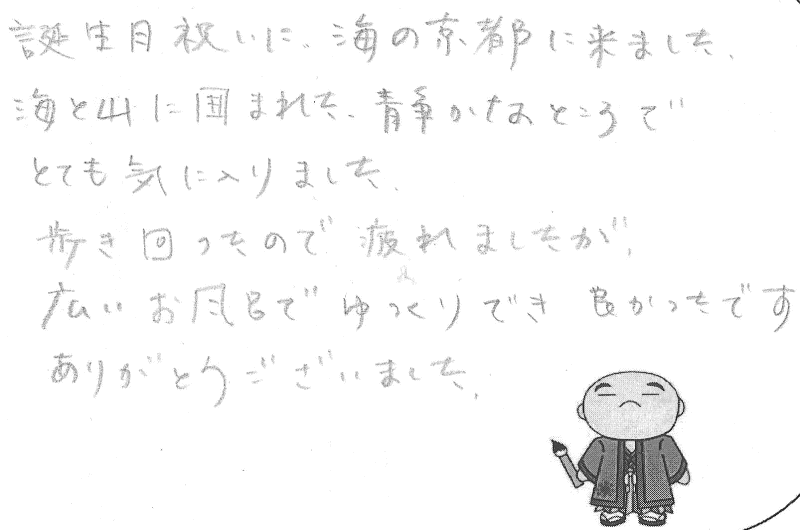 誕生日祝いに、海の京都に来ました。
海と山に囲まれた、静かなところで
とても気に入りました。
歩き回ったので疲れましたが、
広いお風呂でゆっくりでき良かったです
ありがとうございました。